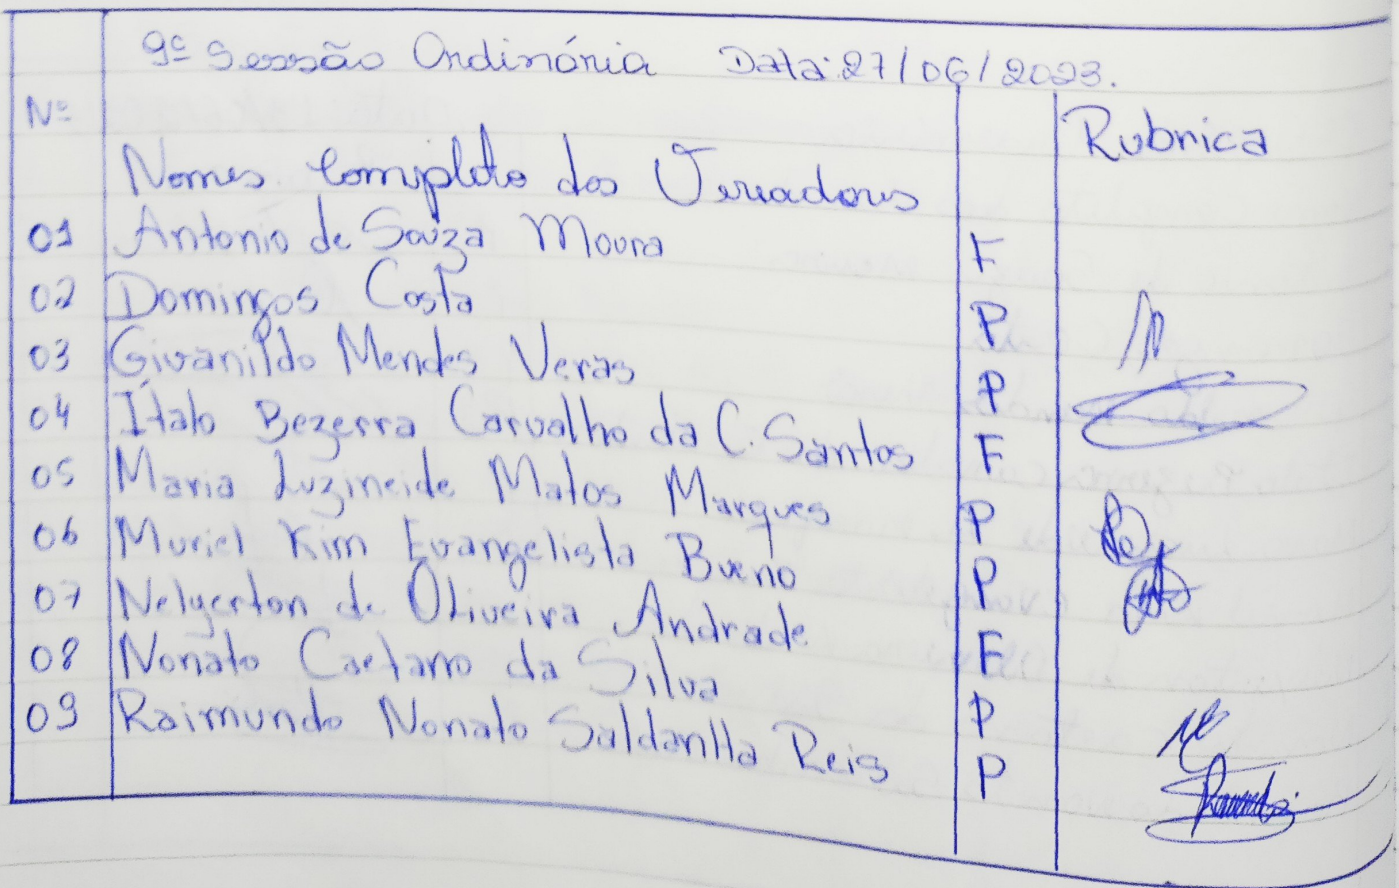 9ª Sessão Ordinária Data: 27/06/2023.
Nº Rubrica
Nomes Completo dos Vereadores
01 Antonio de Souza Moura F
02 Domingos Costa P
03 Givanildo Mendes Veras P
04 Ítalo Bezerra Carvalho da C. Santos F
05 Maria Luzineide Matos Marques P
06 Muriel Kim Evangelista Bueno P
07 Nelyerton de Oliveira Andrade F
08 Nonato Caetano da Silva P
09 Raimundo Nonato Saldanha Reis P